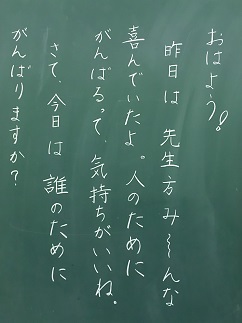 おはよう!
昨日は先生方み〜んな
喜んでいたよ。人のために
がんばるって、気持ちがいいね。
さて、今日は誰のために
がんばりますか?